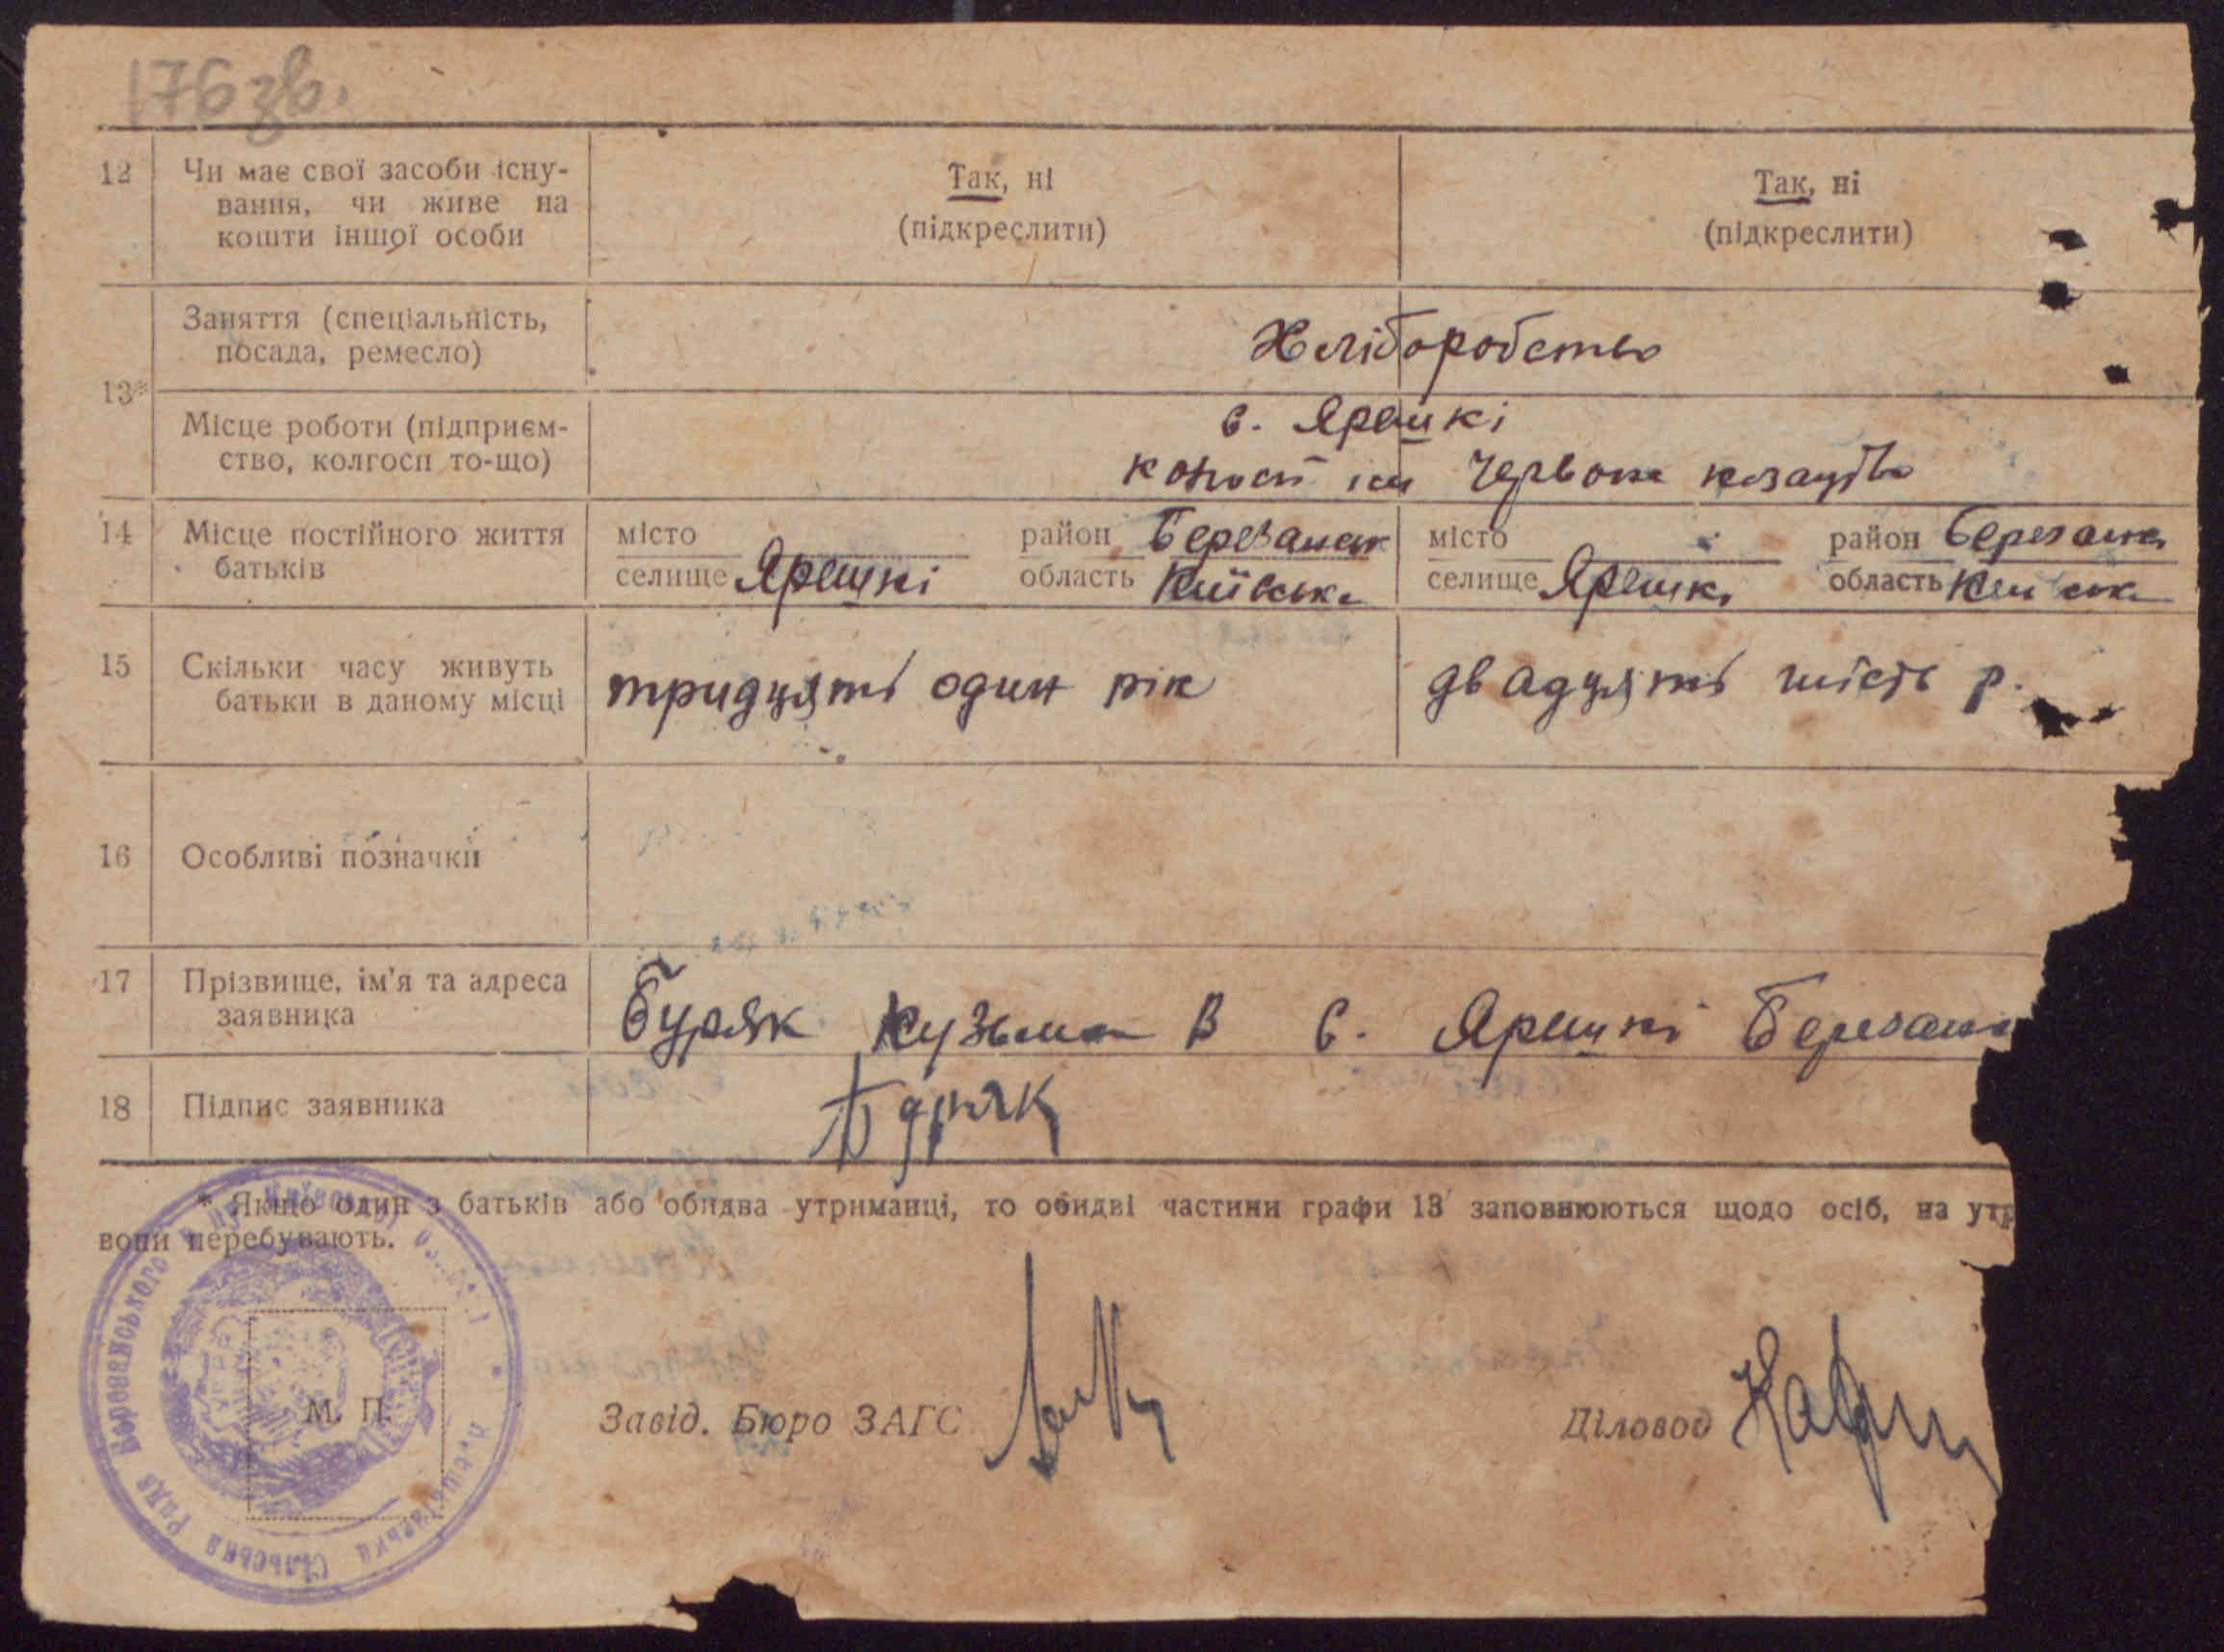 176 зв.
12 Чи має свої засоби існу-
вання, чи живе на
кошти іншої особи
Так, ні
(підкреслити)
Так, ні
(підкреслити)
13*
Заняття (спеціальність,
посада, ремесло)
Хліборобство
Місце роботи (підприєм-
ство, колгосп то-що)
с. Ярешкі
Червоне козацтво
14 Місце постійного життя
батьків
місто
селище Ярешкі
район Березанськ
область Київська
місто
селище Ярешкі
район Березанськ
область Київська
15 Скільки часу живуть
батьки в даному місці
тридцять один рік
двадцять шість р.
16 Особливі позначки
17 Прізвище, ім'я та адреса
заявника
Буряк Кузьма В с. Ярешкі Березанс
18 Підпис заявника
Буряк
* Якщо один з батьків або обидва утриманці, то обидві частини графи 13 заповнюються щодо осіб, на утр
вони перебувають.
М. П.
Завід. Бюро ЗАГС
Діловод
Сільська Рада